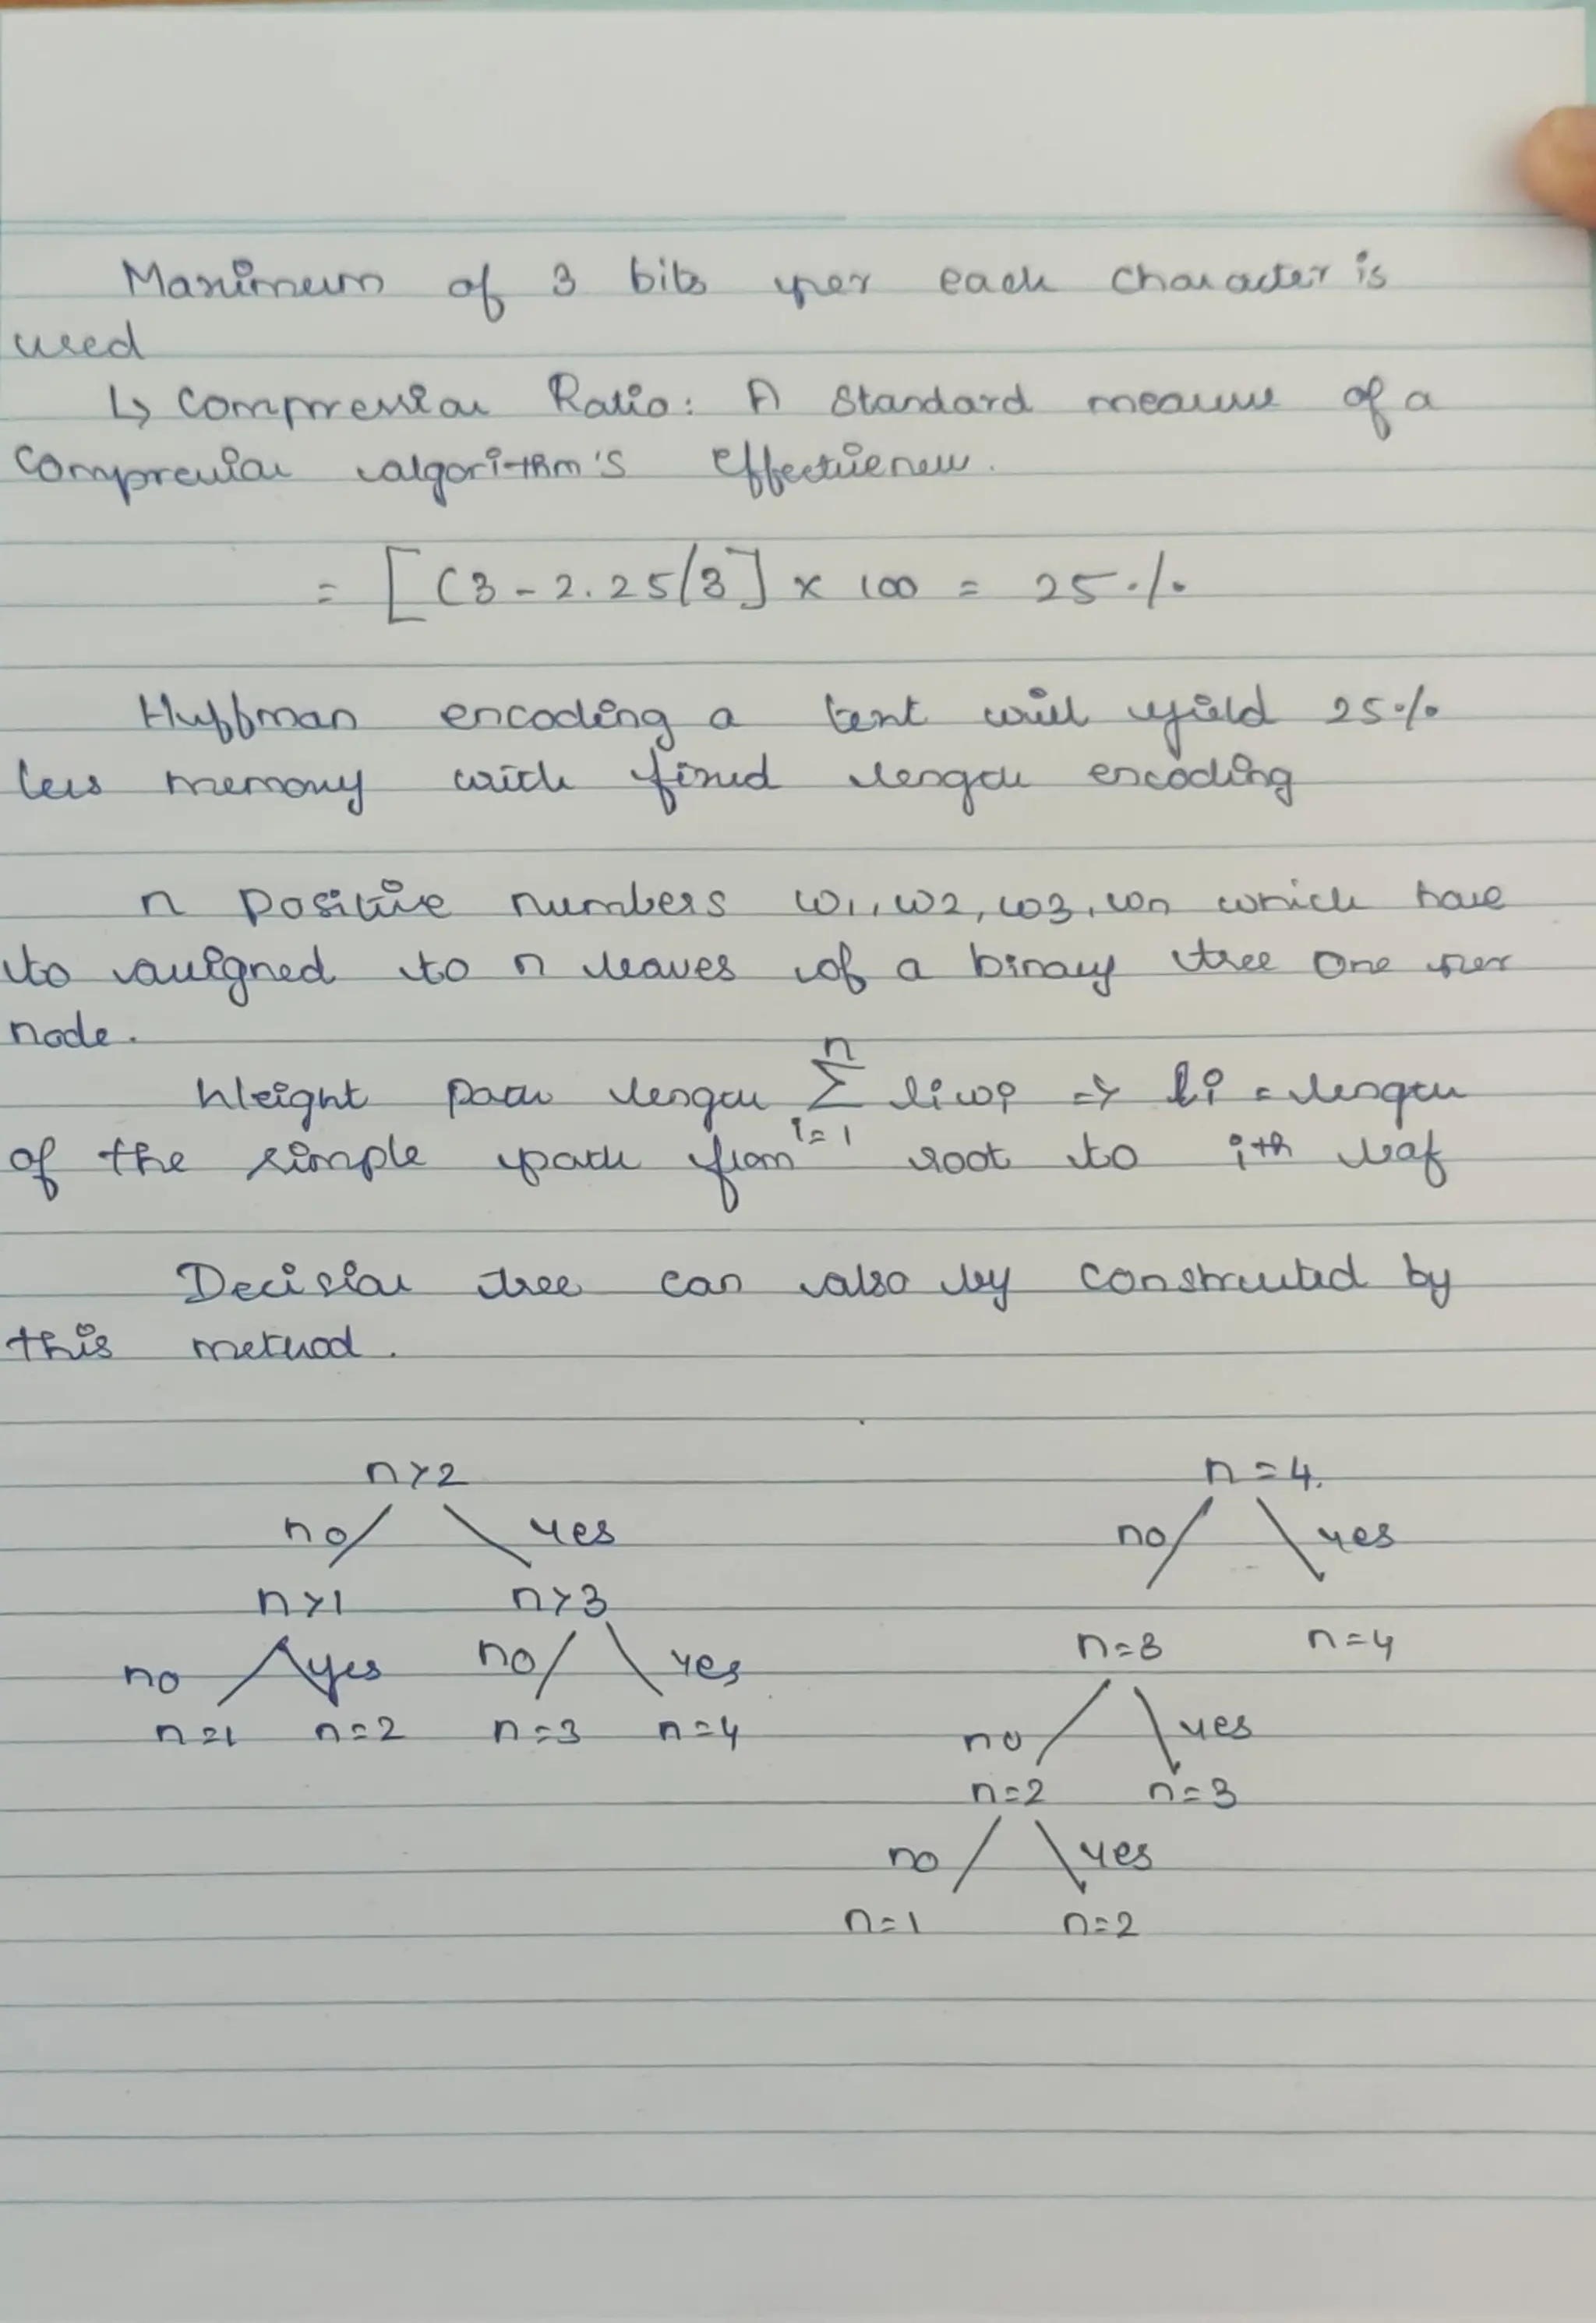 Maximum of 3 bits per each character is
used
↳ Compression Ratio: A Standard measure of a
Compression algorithm's effectiveness.
= [(3 - 2.25/3] x 100 = 25%
Huffman encoding a text will yield 25%
less memory with fixed length encoding
n positive numbers w1, w2, w3, wn which have
to assigned to n leaves of a binary tree one per
node.
n
Weight path length Σ li wi => li = length
i=1
of the simple path from root to ith leaf
Decision tree can also by constructed by
this method.
n>2 n=4.
no yes no yes
n>1 n>3
no yes no yes n=3 n=4
n=1 n=2 n=3 n=4 no yes
n=2 n=3
no yes
n=1 n=2